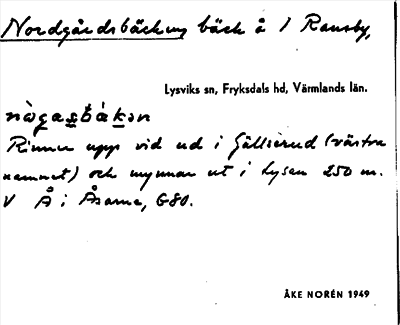 Nordgårdsbäcken, bäck å 1 Ransby,
Lysviks sn, Fryksdals hd, Värmlands län.
Rinner upp vid ud i Gällserud (västra
namnet) och mynnar ut i Lysan 250 m.
V Å i Åsarna, G80.
ÅKE NORÉN 1949